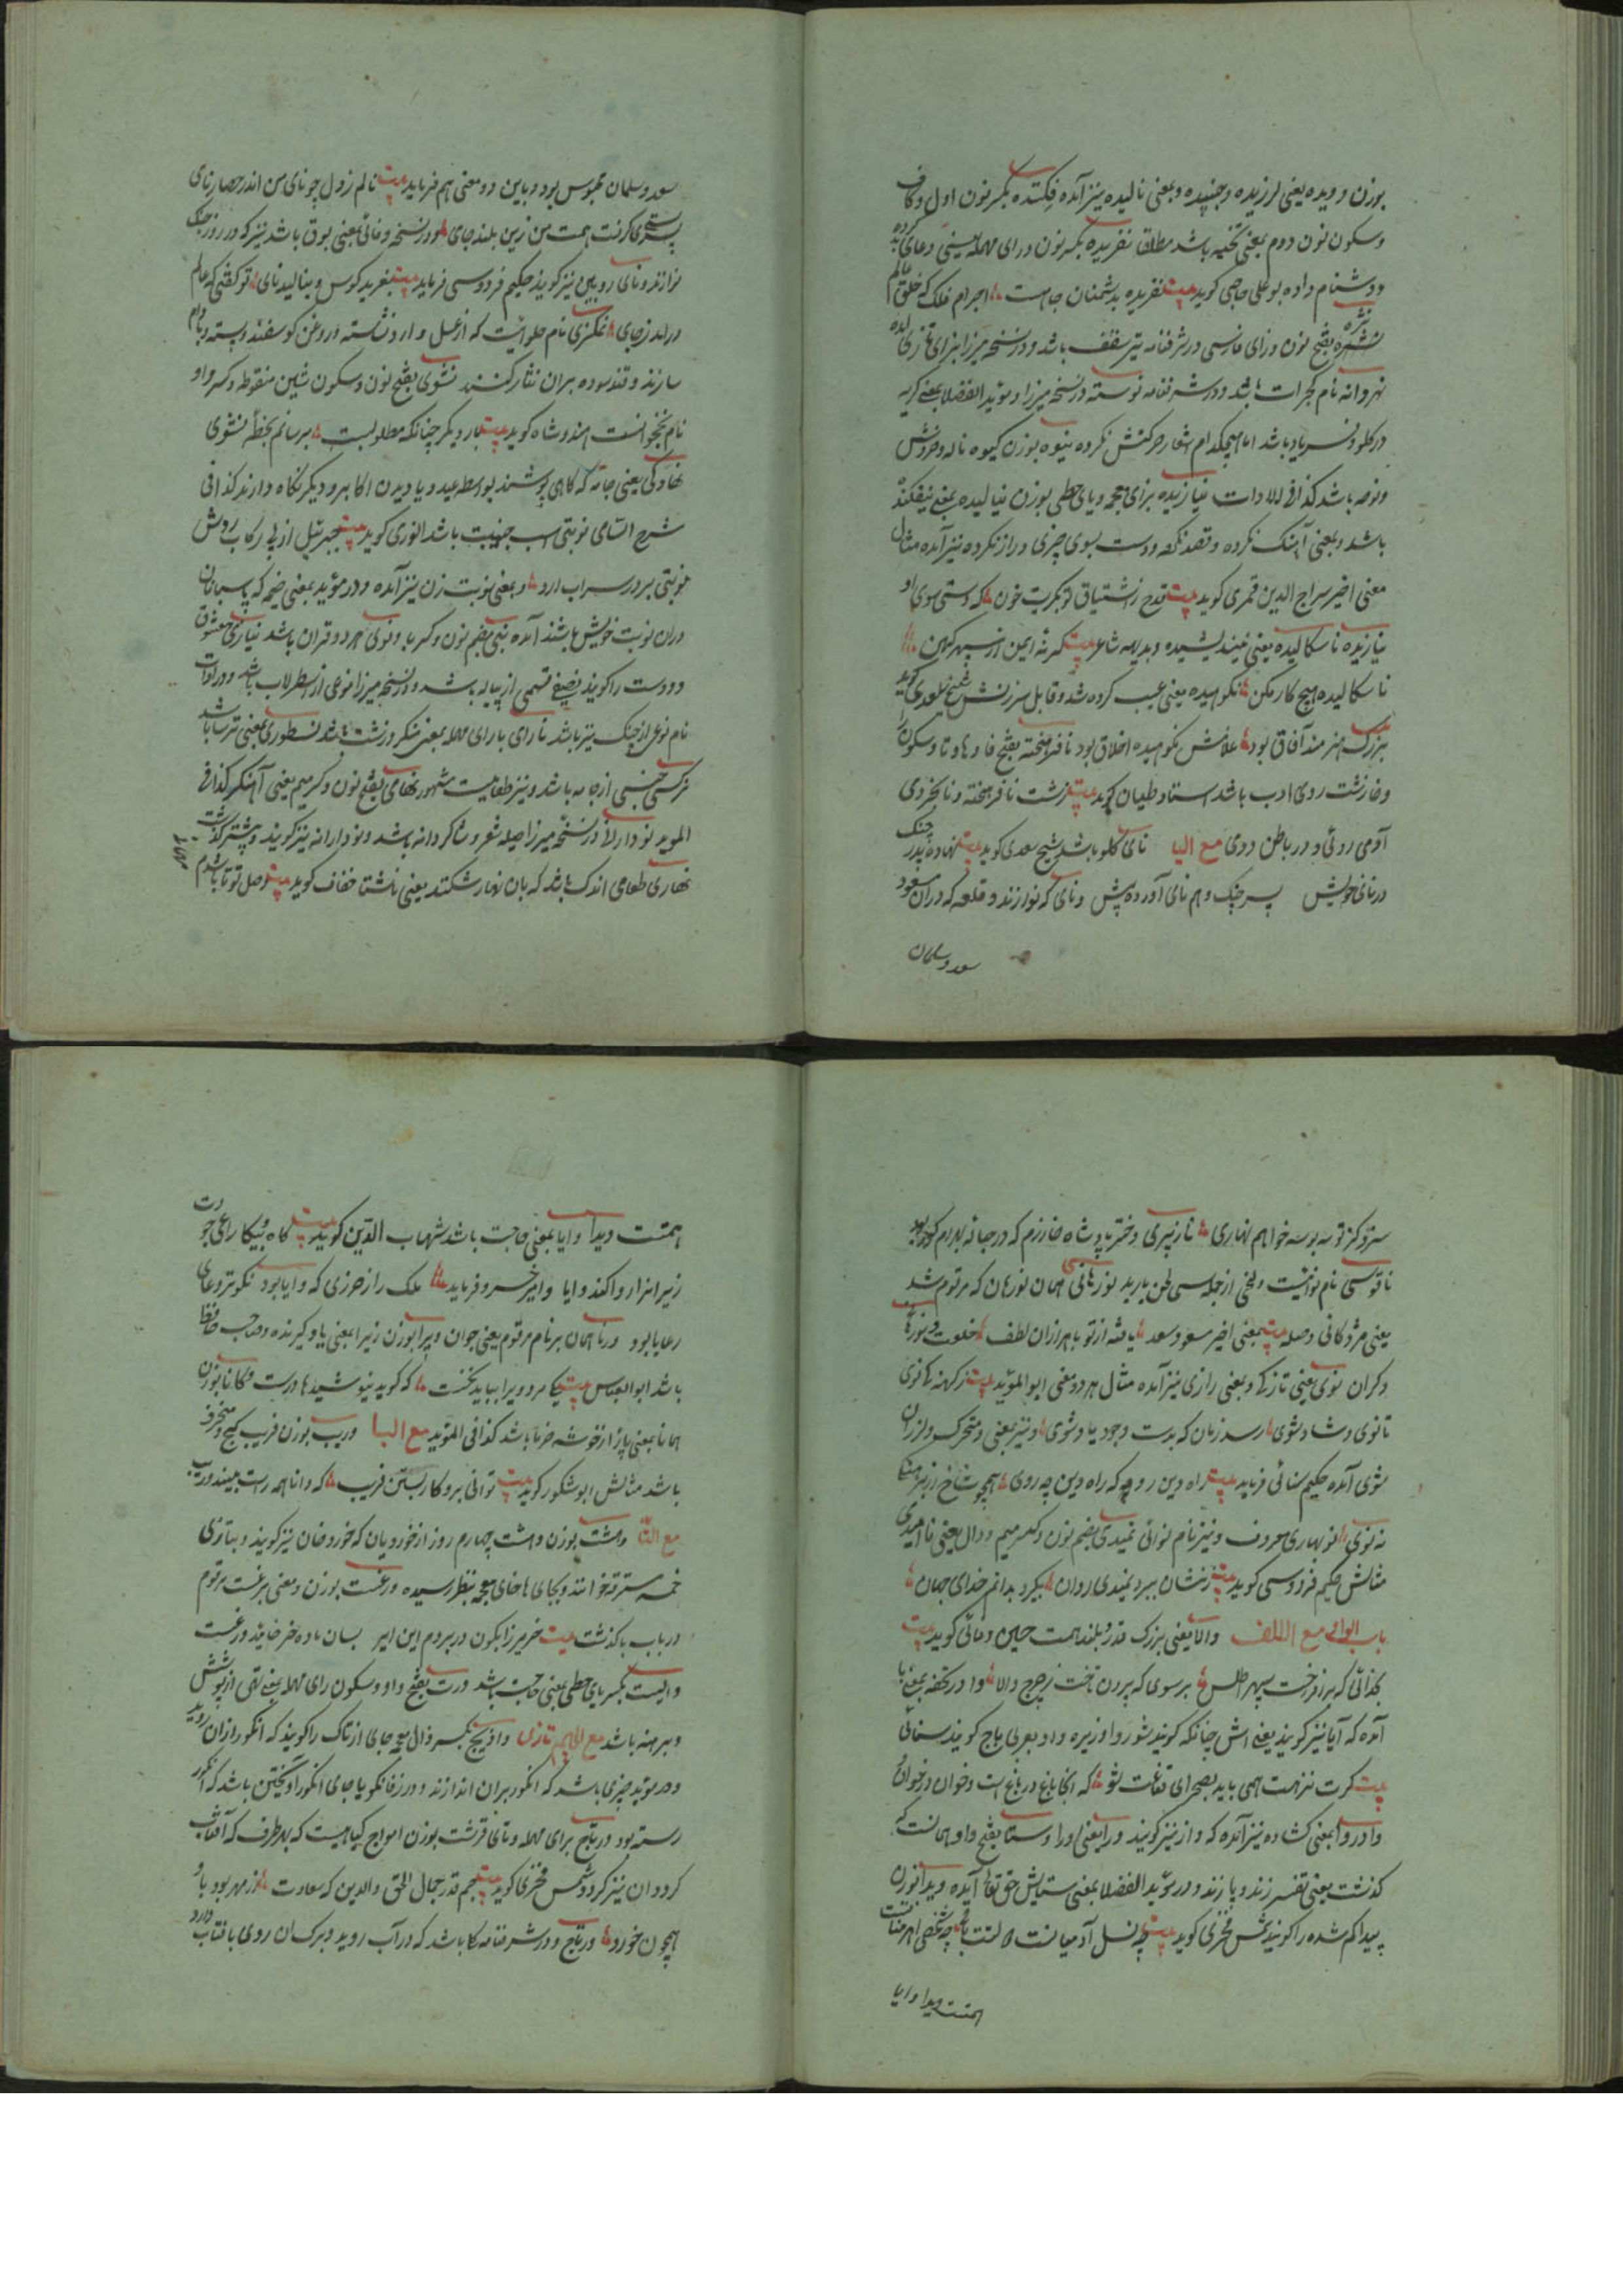 بوزن دویده یعنی لرزیده و جنبیده و بمعنی نالیده نیز آمده نکنده بکسر نون اول و کاف
و سکون نون دوم بمعنی باشد مطلقا نفریده بکسر نون و رای مهمله یعنی دعای بد کرده
و دشنام داده بو علی حاجی کوید بیت نفریده بدشمنان جاهت اجرام فلک که خلق عالم
بفتح نون و زای فارسی در شرفنامه تیر سقف باشد و در نسخه میرزا بزای تازی آمده
نهروانه نام کجرات باشد و در شرفنامه نوسته در نسخه میرزا و موید الفضلا بمعنی کریه
در کلو و فریاد باشد اما هیچکدام اشعار حرکتش نکرده نیوه بوزن کیوه ناله و خروش
و نوحه باشد کذا فی الادات نیازیده بزای معجمه و یای حطی بوزن نیالیده بمعنی نیفکنده
باشد و بمعنی آهنک نکرده و قصد نکرده و دست بسوی چیزی دراز نکرده نیز آمده مثال
معنی اخیر سراج الدین قمری کوید بیت قدح ز اشتیاق تو بکریت خون که دستی سوی او
نیازیده ناسکالیده یعنی نیندیشیده و بدیهه شاعر بیت کر نه ایمن از سپهر کهن
ناسکالیده هیچ کار مکن نکوهیده یعنی عیب کرده شده و قابل سرزنش شیخ سعدی کوید
بزرک هنرمند آفاق بود غلامش نکوهیده اخلاق بود نافرهخته بفتح فا و ها و تا و سکون را
و خا زشت روی ادب باشد استاد طیان کوید بیت زشت نافرهخته و نابخردی
آدمی روئی و در باطن ددی مع الیا نای کلو باشد شیخ سعدی کوید بیت نهاده پدر چنک
در نای خویش پسر چنک و هم نای آورده پیش و نای که نوازند و قلعه که دران مسعود
سعد و سلمان
سعد و سلمان محبوس بود و باین دو معنی هم فرماید بیت نالم ز دل چو نای من اندر حصار نای
پستی کرفت همت من زین بلند جای و در نسخه وفائی بمعنی بوق باشد نیز که در روز جنک
نوازند و نای رویین نیز کویند حکیم فردوسی فرماید بیت بغرید کوس و بنالید نای تو کفتی که عالم
درامد ز جای نام حلوائیست که از عسل و ارد و نشاسته و روغن کوسفند و پسته و بادام
سازند و قند سوده بران نثار کنند نشوی بفتح نون و سکون شین منقوطه و کسر واو
نام نخجوانست هندوشاه کوید بیت بار دیکر چنانکه مطلوبست برسانم بخطه نشوی
یعنی جامه که کاهی پوشند بواسطه عید و یا دیدن اکابر و دیکر نکاه دارند کذا فی
شرح السامی نوبتی اسب جنیبت باشد انوری کوید بیت جبرئیل از پی رکاب روش
نوبتی بر در سراب ارد و بمعنی نوبت زن نیز آمده و در موید بمعنی خیمه که پاسبانان
دران نوبت خویش باشند آمده نبی بضم نون و کسر با و نوی هر دو قران باشد نیازی معشوق
و دوست را کویند قسمی از پیاله باشد و در نسخه میرزا نوعی از اسطرلاب باشد و در ادات
نام نوعی از جنک نیز باشد نارای بارای مهمله بمعنی منکر و زشت باشد نسطوری بمعنی ترسا باشد
نرکسی جنسی از جامه باشد و نیز طعامیست مشهور نهامی بفتح نون و کسر میم یعنی آهنکر کذا فی
الموید نودارانی در نسخه میرزا صله شعر و شاکردانه باشد و نودارانه نیز کویند و بیشتر کذشت
نهاری طعامی اندک باشد که بان نهار شکنند یعنی ناشتا خفاف کوید بیت وصل تو تا باشدم
سزد کر ز تو سه بوسه خواهم نهاری نازپری دختر پادشاه خوارزم که در حباله بهرام کور بود
ناقوسی نام نوائیست و لحنی از جمله سی لحن باربد نورهانی همان نورهان که مرقوم شد
یعنی مژدکانی و صله بیت بمعنی اخیر مسعود سعد یافته از تو باهزاران لطف خلعت و نورها
و کران نوی یعنی تازکی و بمعنی رازی نیز آمده مثال هر دو معنی ابو الموید بیت ز کهنه تا نوی
تا نوی و شاد شوی رسد زمان که بدست وجود یاد شوی و نیز بمعنی متحرک و لرزان
شوی آمده حکیم سنائی فرماید بیت راه دین رو چه که راه دین چه روی همچو شاخ از
نه نوی نوبهاری معروف و نیز نام نوائی نمیدی بضم نون و کسر میم و دال یعنی ناامیدی
مثالش حکیم فردوسی کوید بیت زنشان ببرد نمیدی روان بکرد بدانم خدای جهان
باب الواو مع الالف والا یعنی بزرک قدر و بلند همت حسین وفائی کوید بیت
بخدائی که برافراخت سپهر اطلس بر سوی که بردن تاخت ز چرخ والا وا در تحفه بمعنی با
آمده که آیا نیز کویند یعنی اش چنانکه کویند شوروا و زیره وا و بعربی باج کویند سنائی
بیت کرت نزهت همی باید بصحرای قناعت شو که انجا باغ در باغ است و خوان در خوان و وا
وا در وا بمعنی کشاده نیز آمده که و از نیز کویند ورا یعنی او را وستا بفتح واو همانست که
کذشت یعنی تفسیر زند و پازند و در موید الفضلا بمعنی ستایش حق تعالی آمده ویدا بوزن
پیدا کم شده را کویند شمس فخری کوید بیت
همتت ویدا وایا
همتت ویدا وایا بمعنی حاجت باشد شهاب الدین کوید بیت کاه و بیکا
زیر ایزار وا کند وایا وامیر خسرو فرماید ملک را ز حرزی که وایا بود نکوتر دعای
رعایا بود ورنا همان برنا مرقوم یعنی جوان ویرا بوزن زیرا بمعنی یاد کیرنده و صاحب حافظه
باشد ابو العباس بیت یکا مرد ویرا بباید نخست که کوید نیوشیدها درست وکانا بوزن
همانا بمعنی پازار خوشه خرما باشد کذا فی الموید مع البا وریب بوزن فریب کج و منحرف
باشد مثالش ابو شکور کوید بیت توانی برو کار بستن فریب که دانا همه راست بیند وریب
مع التا وهشت بوزن و هشت چهارم روز از خوردیان که خورد خان نیز کویند و بتازی
خمسه مسترقه خوانند و بجای ها خای معجمه بنظر رسیده ورغست بوزن و معنی برغست مرقوم
در باب با کذشت بیت خر میرزا بکون در برم این امیر بسان ماده خر خایند ورغست
وایست بکسر یای حطی بمعنی حاجت باشد ورت بفتح واو و سکون رای مهمله یعنی تهی از پوشش
و برهنه باشد مع الجیم تازی وادیج بکسر دال معجمه جای از تاک را کویند که انکور ازان روید
و در موید چیزی باشد که انکور بران اندازند و در زفانکویا جای انکور اویختن باشد که انکور
رسته بود ورتاج برای مهمله و تای قرشت بوزن امواج کیاهیست که بهر طرف که آفتاب
کردد ان نیز کردد شمس فخری کوید بیت جم قدر جمال الحق والدین که سعادت از مهر بود با او
همچون خور و ورتاج و در شرفنامه کیا باشد که در آب روید و برک ان روی بافتاب دارد